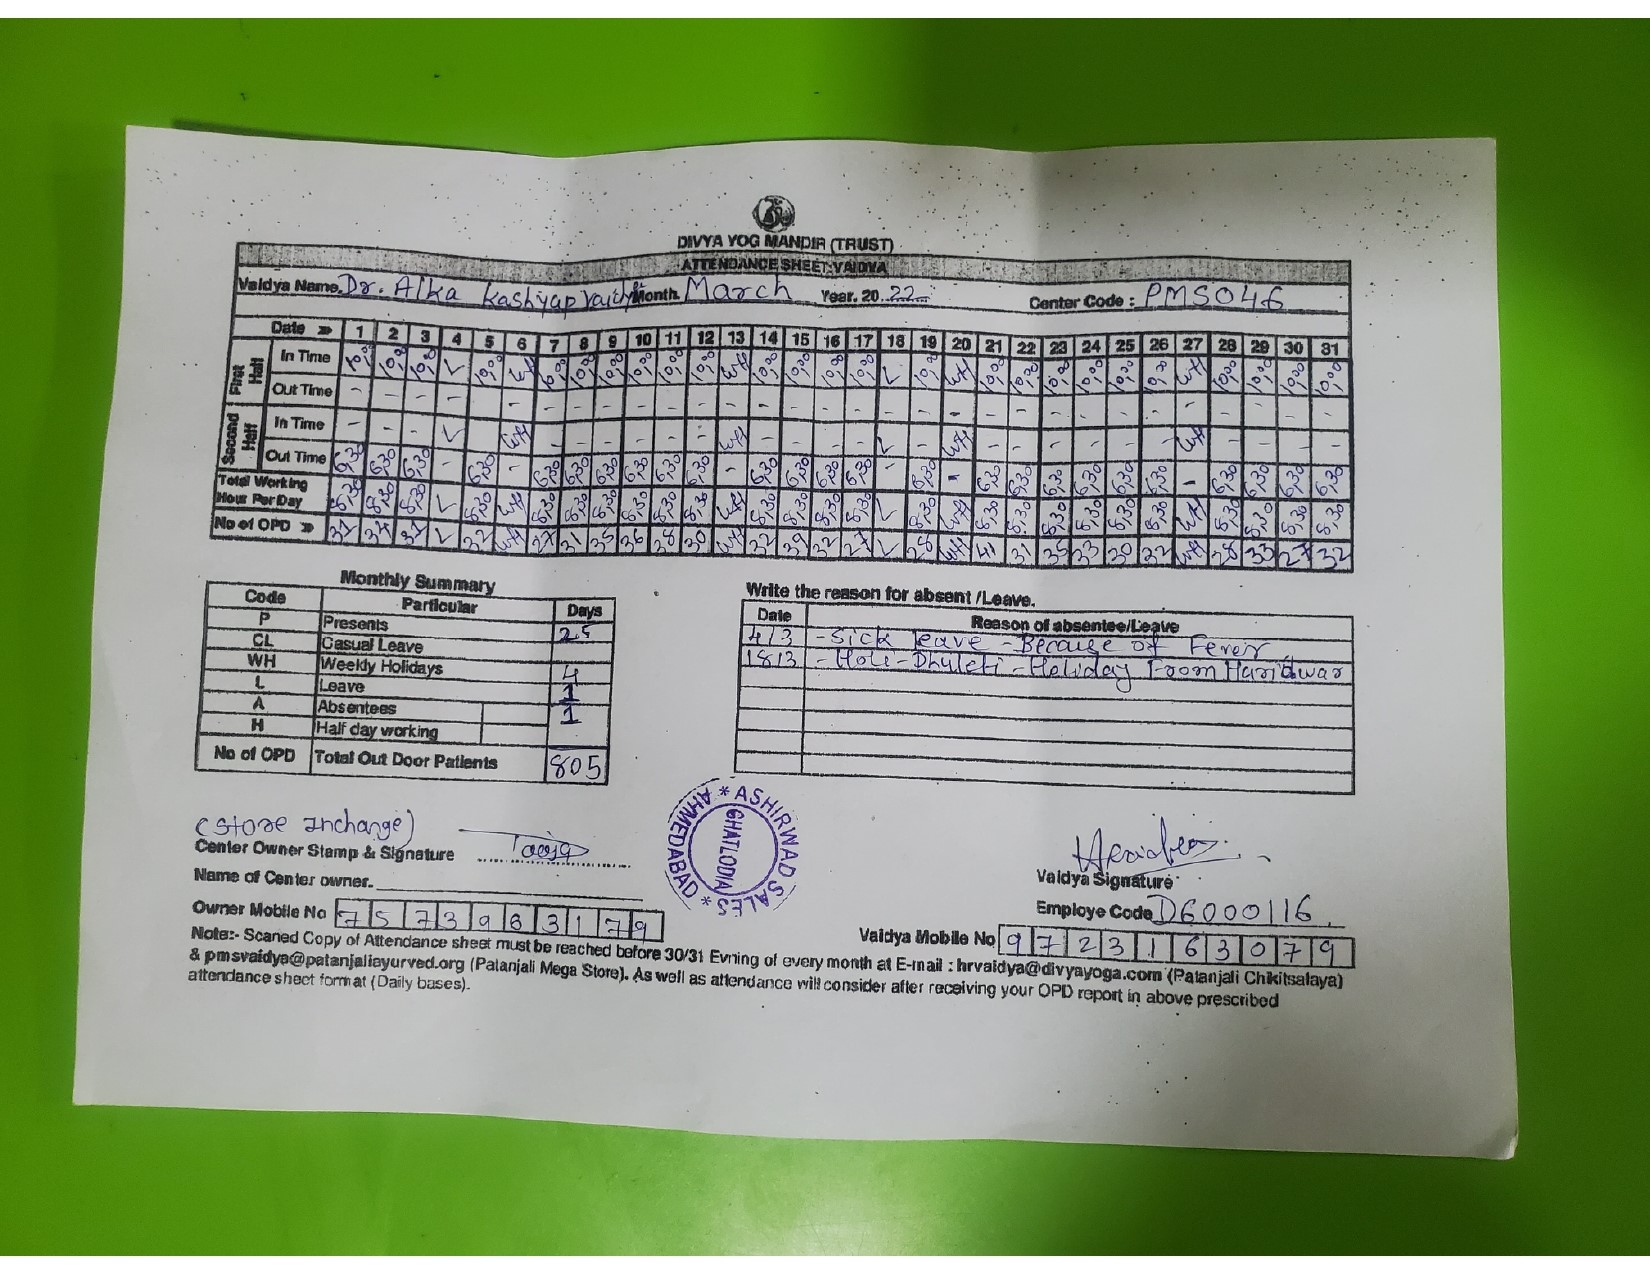 DIVYA YOG MANDIR (TRUST)
ATTENDANCE SHEET:VAIDYA
Vaidya Name. Dr. Alka Kashyap Month. March Year. 20 22 Center Code : PMS046
Date » 1 2 3 4 5 6 7 8 9 10 11 12 13 14 15 16 17 18 19 20 21 22 23 24 25 26 27 28 29 30 31
First Half
In Time 10,00 10,00 10,00 L 10,00 WH 10,00 10,00 10,00 10,00 10,00 10,00 WH 10,00 10,00 10,00 10,00 L 10,00 WH 10,00 10,00 10,00 10,00 10,00 10,00 WH 10,00 10,00 10,00 10,00
Out Time - - - - - - - - - - - - - - - - - - - - - - - - - - - - - - -
Second Half
In Time - - - L - WH - - - - - - WH - - - - L - WH - - - - - - WH - - - -
Out Time 6,30 6,30 6,30 - 6,30 - 6,30 6,30 6,30 6,30 6,30 6,30 - 6,30 6,30 6,30 6,30 - 6,30 - 6,30 6,30 6,30 6,30 6,30 6,30 - 6,30 6,30 6,30 6,30
Total Working
Hour Per Day 8,30 8,30 8,30 L 8,30 WH 8,30 8,30 8,30 8,30 8,30 8,30 WH 8,30 8,30 8,30 8,30 L 8,30 WH 8,30 8,30 8,30 8,30 8,30 8,30 WH 8,30 8,30 8,30 8,30
No of OPD » L 32 WH 31 35 36 38 30 WH 32 39 32 27 L 28 WH 41 31 35 30 32 WH 28 33 27 32
Monthly Summary
Code Particular Days
P Presents 25
CL Casual Leave
WH Weekly Holidays 4
L Leave 1
A Absentees 1
H Half day working
No of OPD Total Out Door Patients 805
Write the reason for absent /Leave.
Date Reason of absentee/Leave
4/3 - Sick leave - Because of Fever
18/3 - Holi - Dhuleti - Holiday From Haridwar
(Store Inchange)
Center Owner Stamp & Signature
Name of Center owner.
Owner Mobile No 7573963179
* ASHIRWAD SALES * AHMEDABAD
GHATLODIA
Vaidya Signature
Employe Code D6000116
Vaidya Mobile No 9723163079
Note:- Scaned Copy of Attendance sheet must be reached before 30/31 Evning of every month at E-mail : hrvaidya@divyayoga.com (Patanjali Chikitsalaya)
& pmsvaidya@patanjaliayurved.org (Patanjali Mega Store). As well as attendance will consider after receiving your OPD report in above prescribed
attendance sheet format (Daily bases).